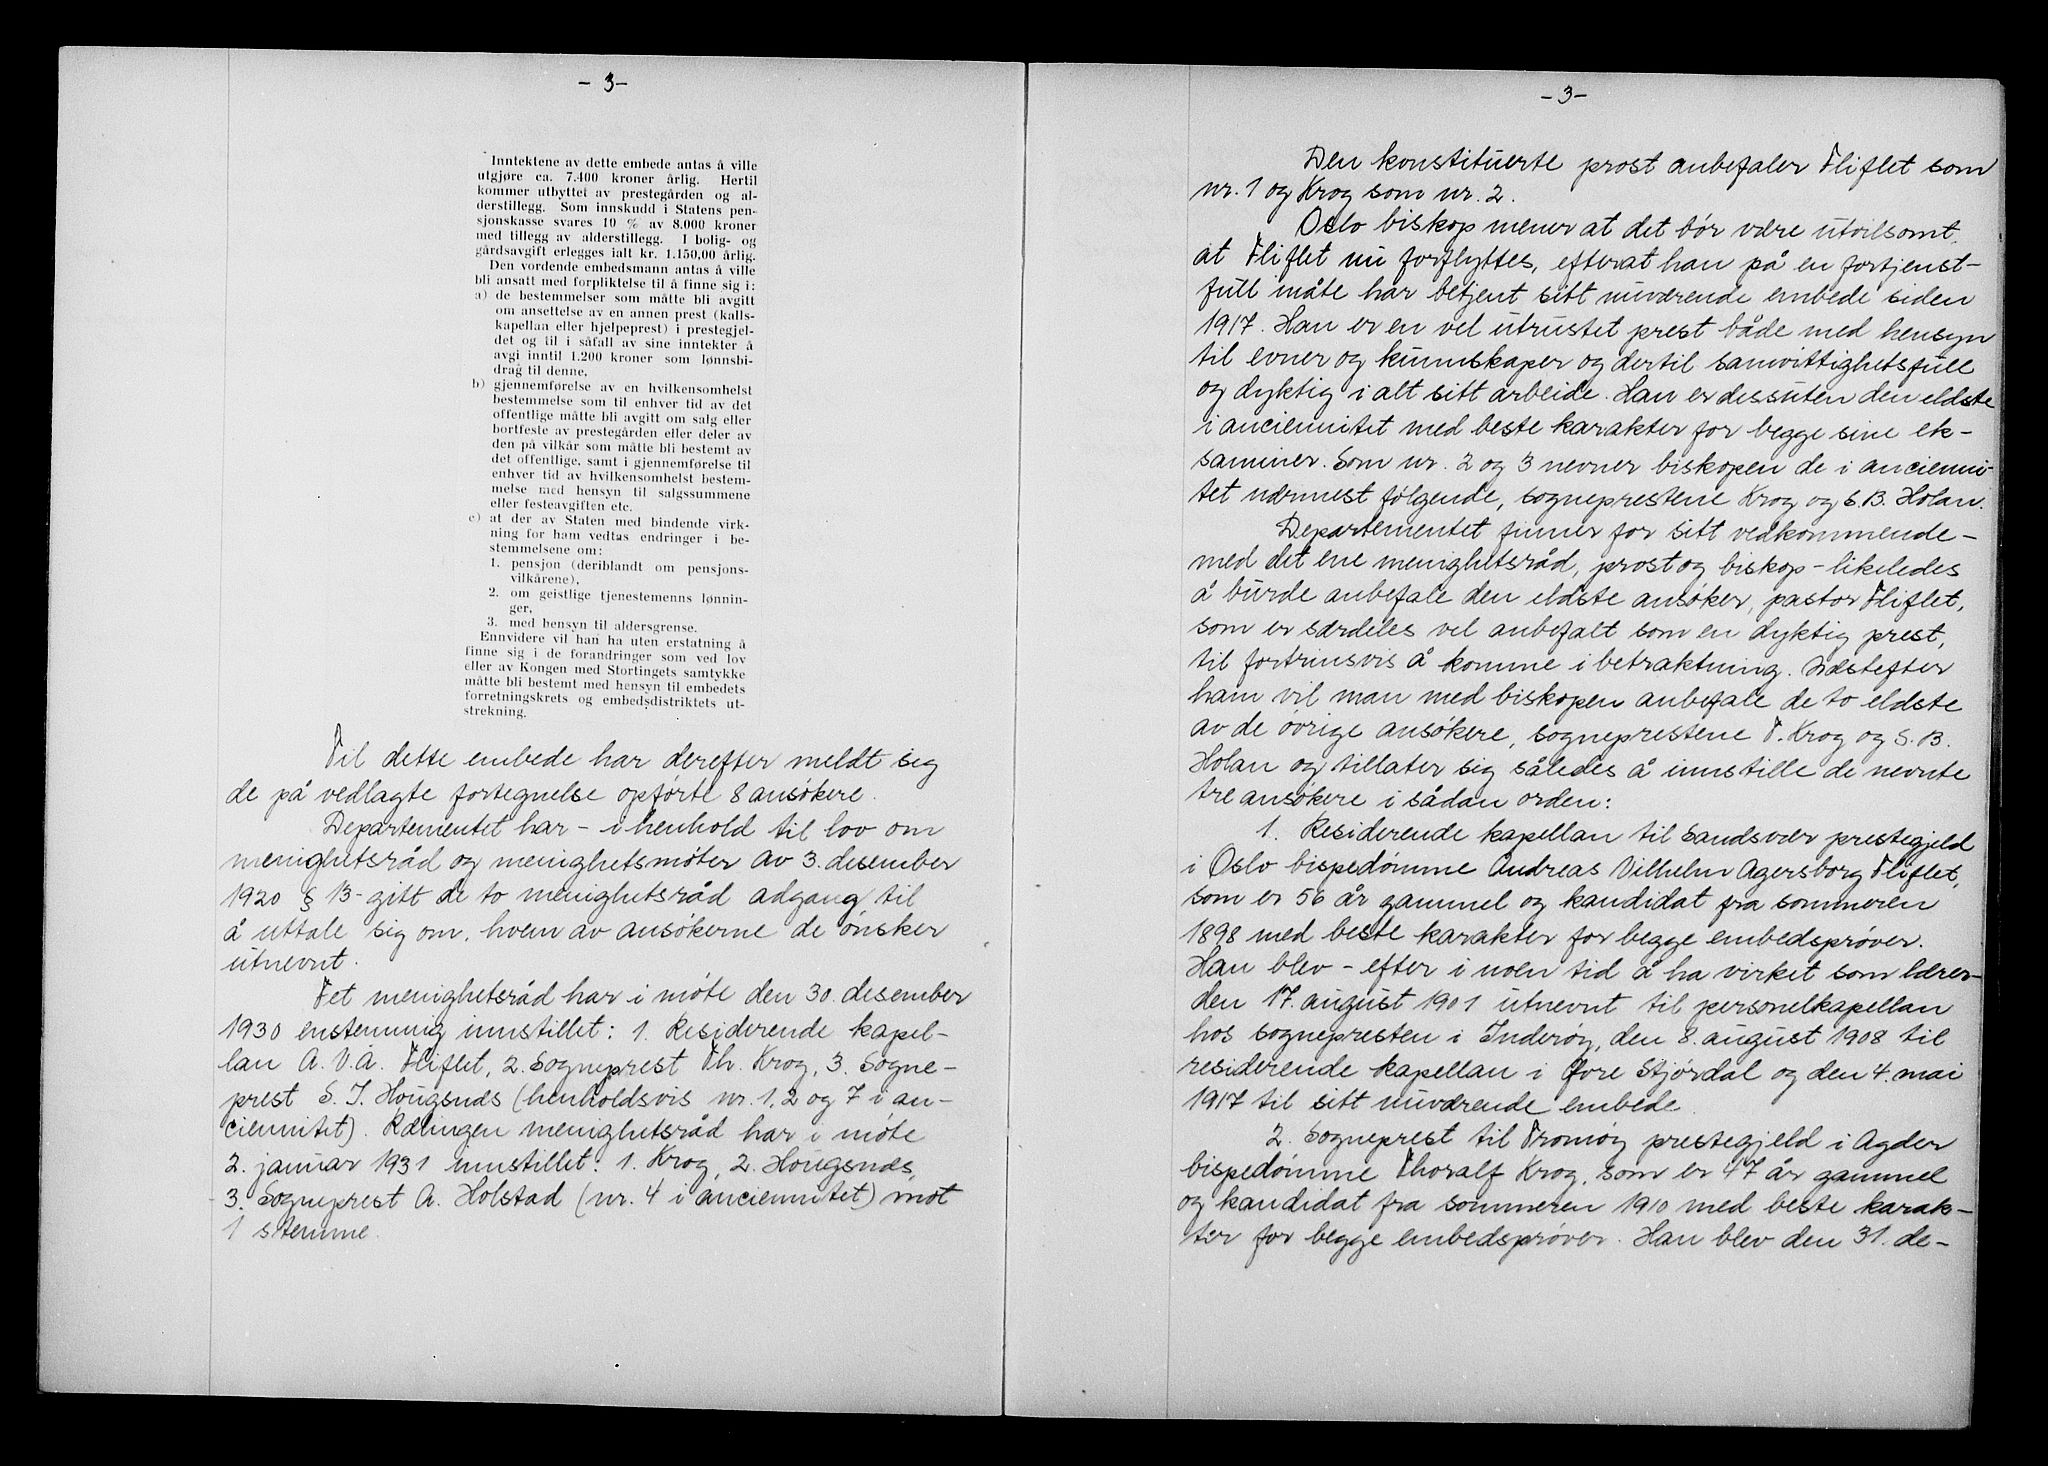 - 3 -
Inntektene av dette embede antas å ville
utgjøre ca. 7.400 kroner årlig. Hertil
kommer utbyttet av prestegården og al-
derstillegg. Som innskudd i Statens pen-
sjonskasse svares 10 % av 8.000 kroner
med tillegg av alderstillegg. I bolig- og
gårdsavgift erlegges ialt kr. 1.150,00 årlig.
Den vordende embedsmann antas å ville
bli ansatt med forpliktelse til å finne sig i:
a) de bestemmelser som måtte bli avgitt
om ansettelse av en annen prest (kalls-
kapellan eller hjelpeprest) i prestegjel-
det og til i såfall av sine inntekter å
avgi inntil 1.200 kroner som lønnsbi-
drag til denne,
b) gjennemførelse av en hvilkensomhelst
bestemmelse som til enhver tid av det
offentlige måtte bli avgitt om salg eller
bortfeste av prestegården eller deler av
den på vilkår som måtte bli bestemt av
det offentlige, samt i gjennemførelse til
enhver tid av hvilkensomhelst bestem-
melse med hensyn til salgssummene
eller festeavgiften etc.
c) at der av Staten med bindende virk-
ning for ham vedtas endringer i be-
stemmelsene om:
1. pensjon (deriblandt om pensjons-
vilkårene),
2. om geistlige tjenestemenns lønnin-
ger,
3. med hensyn til aldersgrense.
Ennvidere vil han ha uten erstatning å
finne sig i de forandringer som ved lov
eller av Kongen med Stortingets samtykke
måtte bli bestemt med hensyn til embedets
forretningskrets og embedsdistriktets ut-
strekning.
Til dette embede har derefter meldt sig
de på vedlagte fortegnelse opførte 8 ansøkere.
Departementet har - i henhold til lov om
menighetsråd og menighetsmøter av 3. desember
1920 § 13 - gitt de to menighetsråd adgang til
å uttale sig om, hvem av ansøkerne de ønsker
utnevnt.
Fet menighetsråd har i møte den 30. desember
1930 enstemmig innstillet: 1. Residerende kapel-
lan A. V. A. Fliflet, 2. Sogneprest Th. Krog, 3. Sogne-
prest S. J. Hougsnæs (henholdsvis nr. 1, 2 og 7 i an-
ciennitet). Rælingen menighetsråd har i møte
2. januar 1931 innstillet: 1. Krog, 2. Hougsnæs,
3. Sogneprest A. Holstad (nr. 4 i anciennitet) mot
1 stemme.
- 3 -
Den konstituerte prost anbefaler Fliflet som
nr. 1 og Krog som nr. 2.
Oslo biskop mener at det bør være utvilsomt,
at Fliflet nu forflyttes, efterat han på en fortjenst-
full måte har betjent sitt nuværende embede siden
1917. Han er en vel utrustet prest både med hensyn
til evner og kunnskaper og dertil samvittighetsfull
og dyktig i alt sitt arbeide. Han er dessuten den eldste
i anciennitet med beste karakter for begge sine ek-
saminer. Som nr. 2 og 3 nevner biskopen de i ancienni-
tet nærmest følgende, sogneprestene Krog og S. B. Holan.
Departementet finner for sitt vedkommende -
med det ene menighetsråd, prost og biskop - likeledes
å burde anbefale den eldste ansøker, pastor Fliflet,
som er særdeles vel anbefalt som en dyktig prest,
til fortrinsvis å komme i betraktning. Næstefter
ham vil man med biskopen anbefale de to eldste
av de øvrige ansøkere, sogneprestene T. Krog og S. B.
Holan og tillater sig således å innstille de nevnte
tre ansøkere i sådan orden:
1. Residerende kapellan til Sandsvær prestegjeld
i Oslo bispedømme Andreas Vilhelm Agersborg Fliflet,
som er 56 år gammel og kandidat fra sommeren
1898 med beste karakter for begge embedsprøver.
Han blev - efter i noen tid å ha virket som lærer -
den 17. august 1901 utnevnt til personelkapellan
hos sognepresten i Inderøy, den 8. august 1908 til
residerende kapellan i Øvre Stjørdal og den 4. mai
1917 til sitt nuværende embede.
2. Sogneprest til Tromøy prestegjeld i Agder
bispedømme Thoralf Krog, som er 47 år gammel
og kandidat fra sommeren 1910 med beste karak-
ter for begge embedsprøver. Han blev den 31. de-